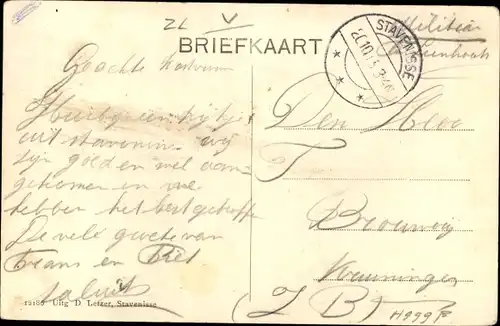 ZL V
BRIEFKAART
STAVENISSE
Militie
Geachte
Hierbij een kijkje
uit stavenisse wij
zijn goed en wel aan-
gekomen en we
hebben het best getroffen
De vele groete van
Frans en Piet
saluut
Den Heer
T
Brouwer
Kruiningen
(Z B)
H999F
12186 Uitg D Letzer, Stavenisse